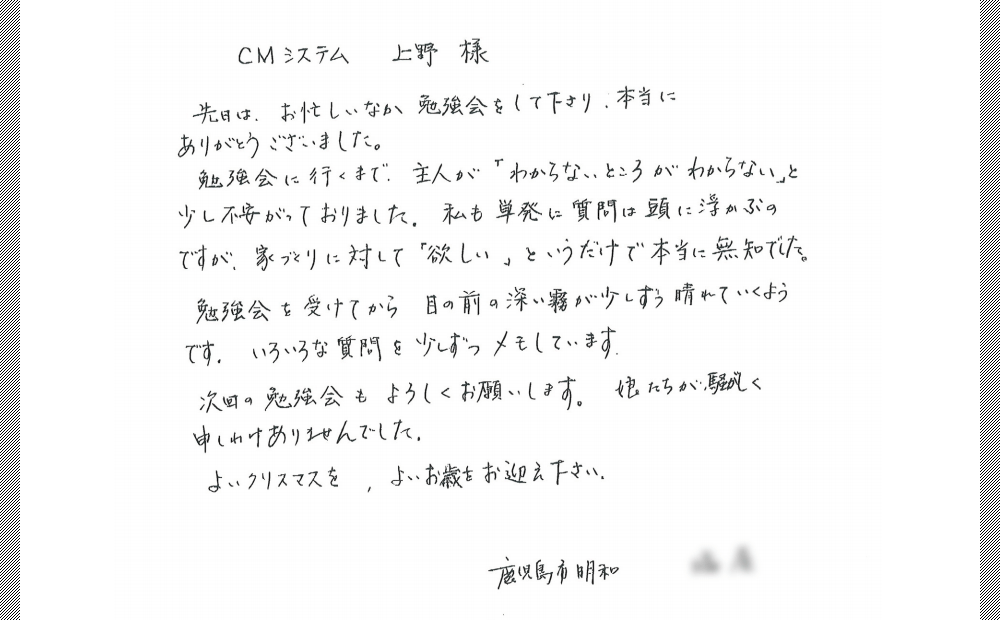 CMシステム 上野 様
先日は、お忙しいなか 勉強会をして下さり、本当に
ありがとうございました。
勉強会に行くまで、主人が「わからないところがわからない」と
少し不安がっておりました。私も単発に質問は頭に浮かぶの
ですが、家づくりに対して「欲しい」というだけで本当に無知でした。
勉強会を受けてから 目の前の深い霧が少しずつ晴れていくよう
です。いろいろな質問を少しずつメモしています。
次回の勉強会もよろしくお願いします。娘たちが騒がしく
申しわけありませんでした。
よいクリスマスを、よいお歳をお迎え下さい。
鹿児島市明和